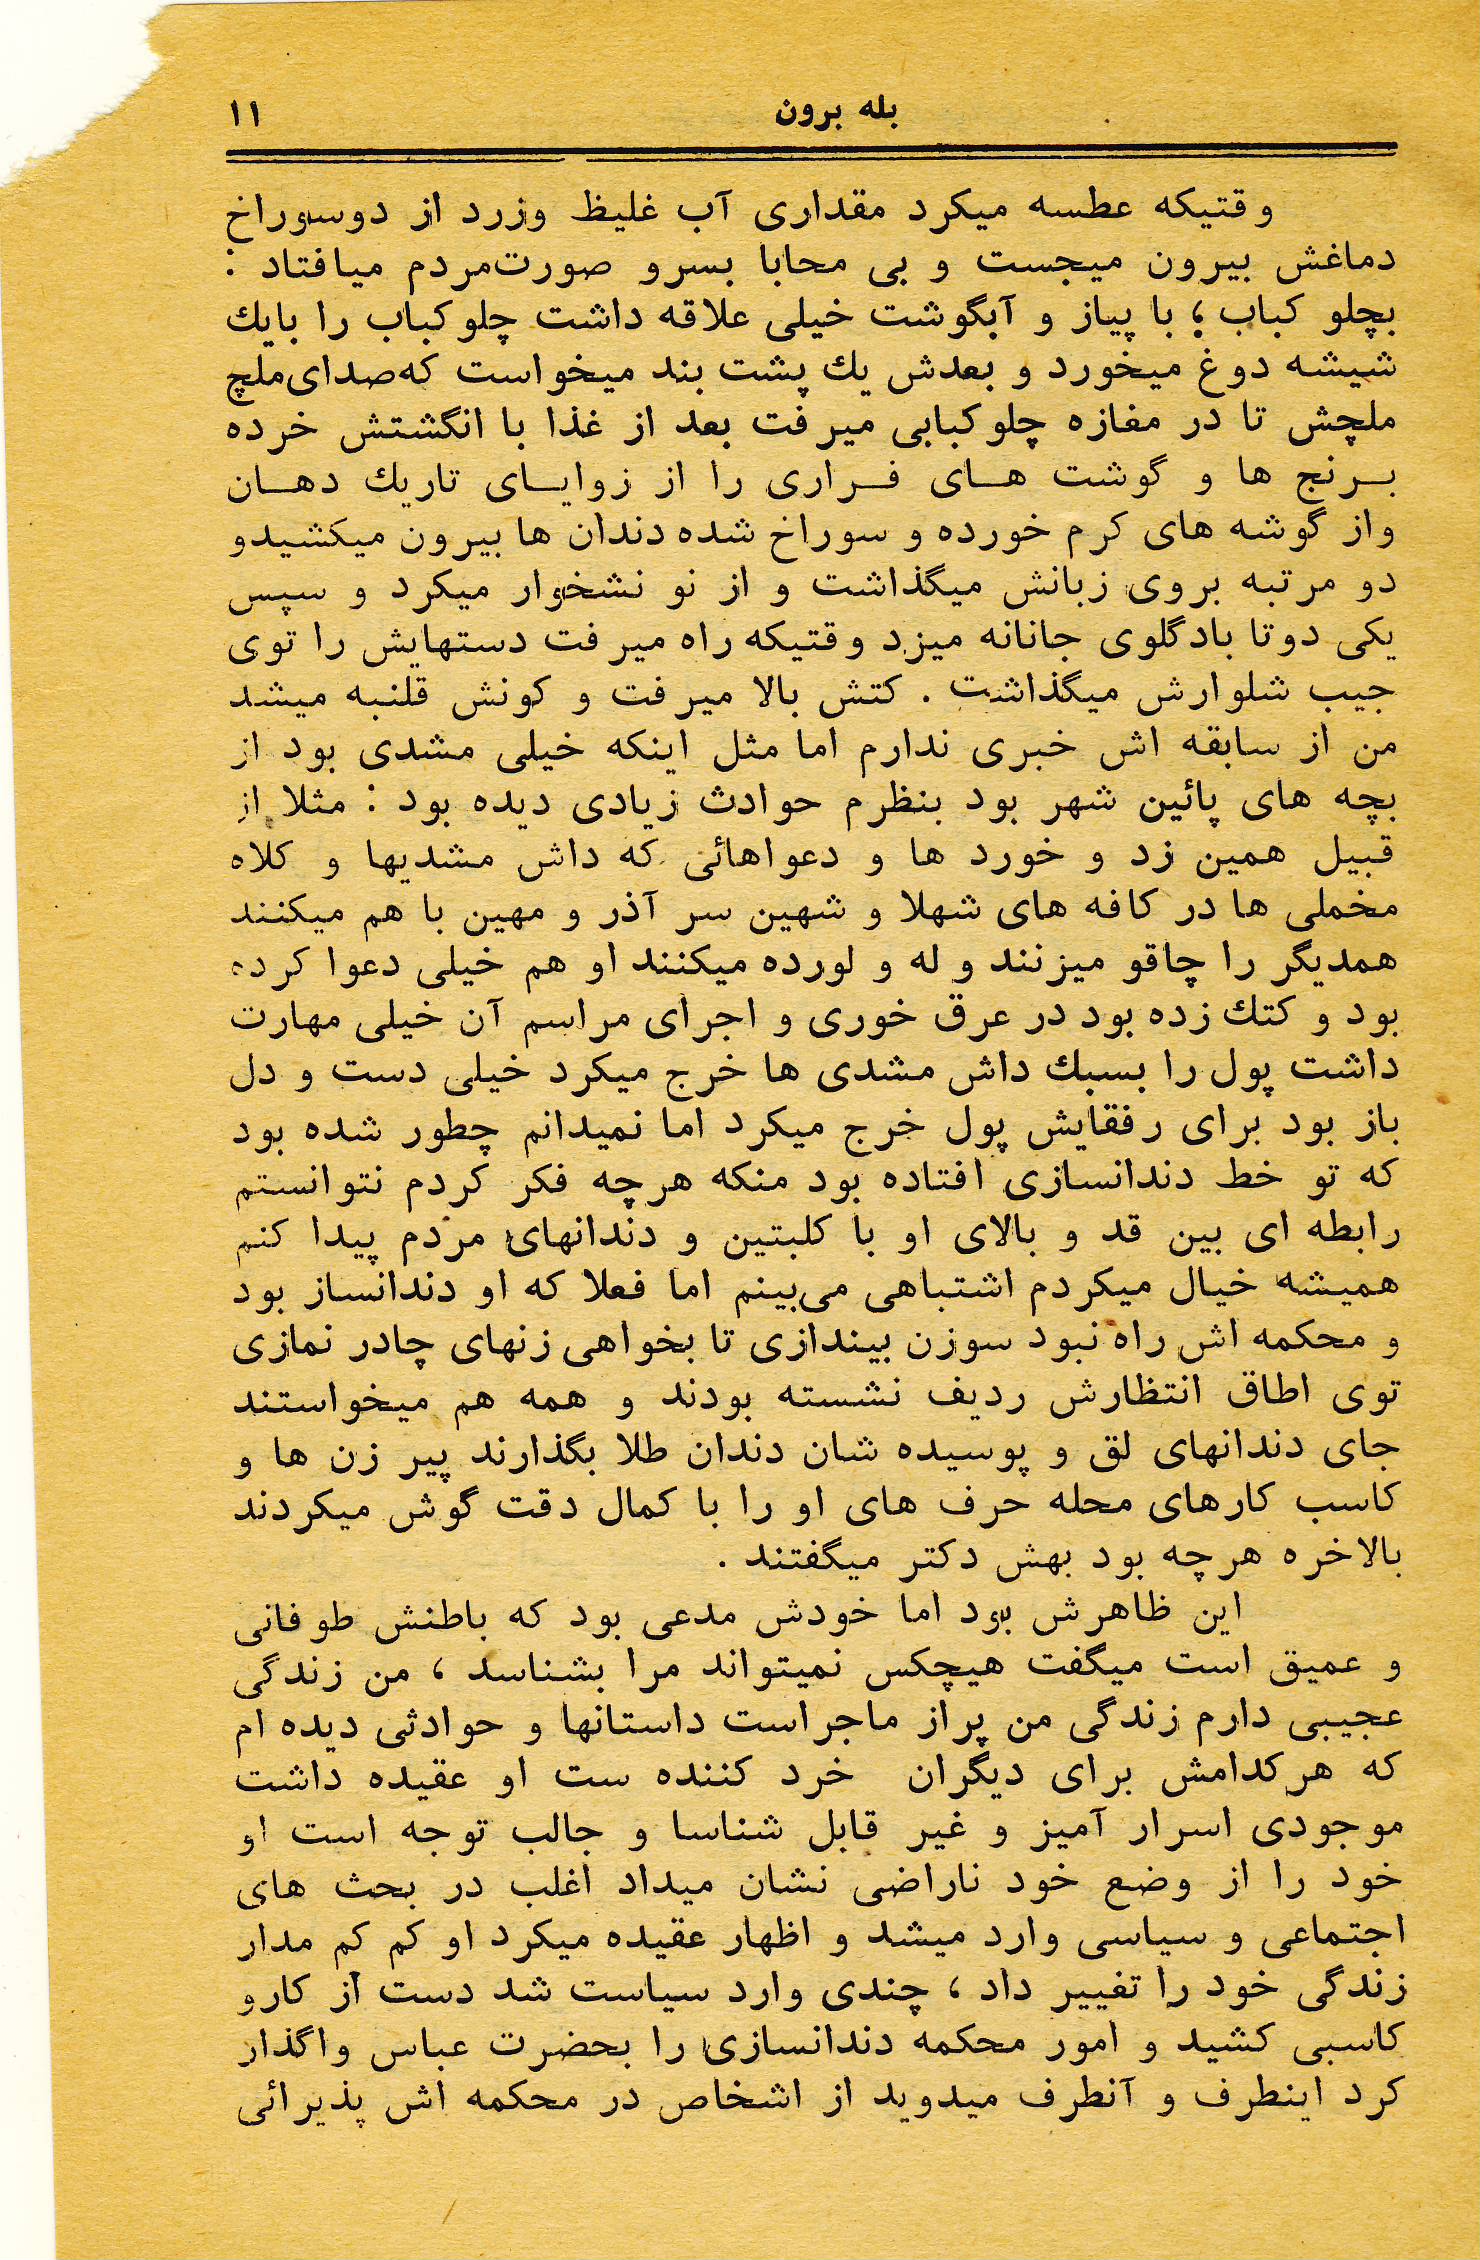 بله برون
۱۱
وقتیکه عطسه میکرد مقداری آب غلیظ وزرد از دوسوراخ
دماغش بیرون میجست و بی محابا بسرو صورت‌مردم میافتاد :
بچلو کباب ؛ با پیاز و آبگوشت خیلی علاقه داشت چلو کباب را بایك
شیشه دوغ میخورد و بعدش یك پشت بند میخواست که‌صدای‌ملچ
ملچش تا در مغازه چلوکبابی میرفت بعد از غذا با انگشتش خرده
بـرنج ها و گوشت هـای فـراری را از زوایـای تاریك دهـان
واز گوشه های کرم خورده و سوراخ شده دندان ها بیرون میکشیدو
دو مرتبه بروی زبانش میگذاشت و از نو نشخوار میکرد و سپس
یکی دوتا بادگلوی جانانه میزد وقتیکه راه میرفت دستهایش را توی
جیب شلوارش میگذاشت . کتش بالا میرفت و کونش قلنبه میشد
من از سابقه اش خبری ندارم اما مثل اینکه خیلی مشدی بود از
بچه های پائین شهر بود بنظرم حوادث زیادی دیده بود : مثلا از
قبیل همین زد و خورد ها و دعواهائی که داش مشدیها و کلاه
مخملی ها در کافه های شهلا و شهین سر آذر و مهین با هم میکنند
همدیگر را چاقو میزنند و له و لورده میکنند او هم خیلی دعوا کرده
بود و کتك زده بود در عرق خوری و اجرای مراسم آن خیلی مهارت
داشت پول را بسبك داش مشدی ها خرج میکرد خیلی دست و دل
باز بود برای رفقایش پول خرج میکرد اما نمیدانم چطور شده بود
که تو خط دندانسازی افتاده بود منکه هرچه فکر کردم نتوانستم
رابطه ای بین قد و بالای او با کلبتین و دندانهای مردم پیدا کنم
همیشه خیال میکردم اشتباهی می‌بینم اما فعلا که او دندانساز بود
و محکمه اش راه نبود سوزن بیندازی تا بخواهی زنهای چادر نمازی
توی اطاق انتظارش ردیف نشسته بودند و همه هم میخواستند
جای دندانهای لق و پوسیده شان دندان طلا بگذارند پیر زن ها و
کاسب کارهای محله حرف های او را با کمال دقت گوش میکردند
بالاخره هرچه بود بهش دکتر میگفتند .
این ظاهرش بود اما خودش مدعی بود که باطنش طوفانی
و عمیق است میگفت هیچکس نمیتواند مرا بشناسد ، من زندگی
عجیبی دارم زندگی من پراز ماجراست داستانها و حوادثی دیده ام
که هرکدامش برای دیگران خرد کننده ست او عقیده داشت
موجودی اسرار آمیز و غیر قابل شناسا و جالب توجه است او
خود را از وضع خود ناراضی نشان میداد اغلب در بحث های
اجتماعی و سیاسی وارد میشد و اظهار عقیده میکرد او کم کم مدار
زندگی خود را تغییر داد ، چندی وارد سیاست شد دست از کارو
کاسبی کشید و امور محکمه دندانسازی را بحضرت عباس واگذار
کرد اینطرف و آنطرف میدوید از اشخاص در محکمه اش پذیرائی